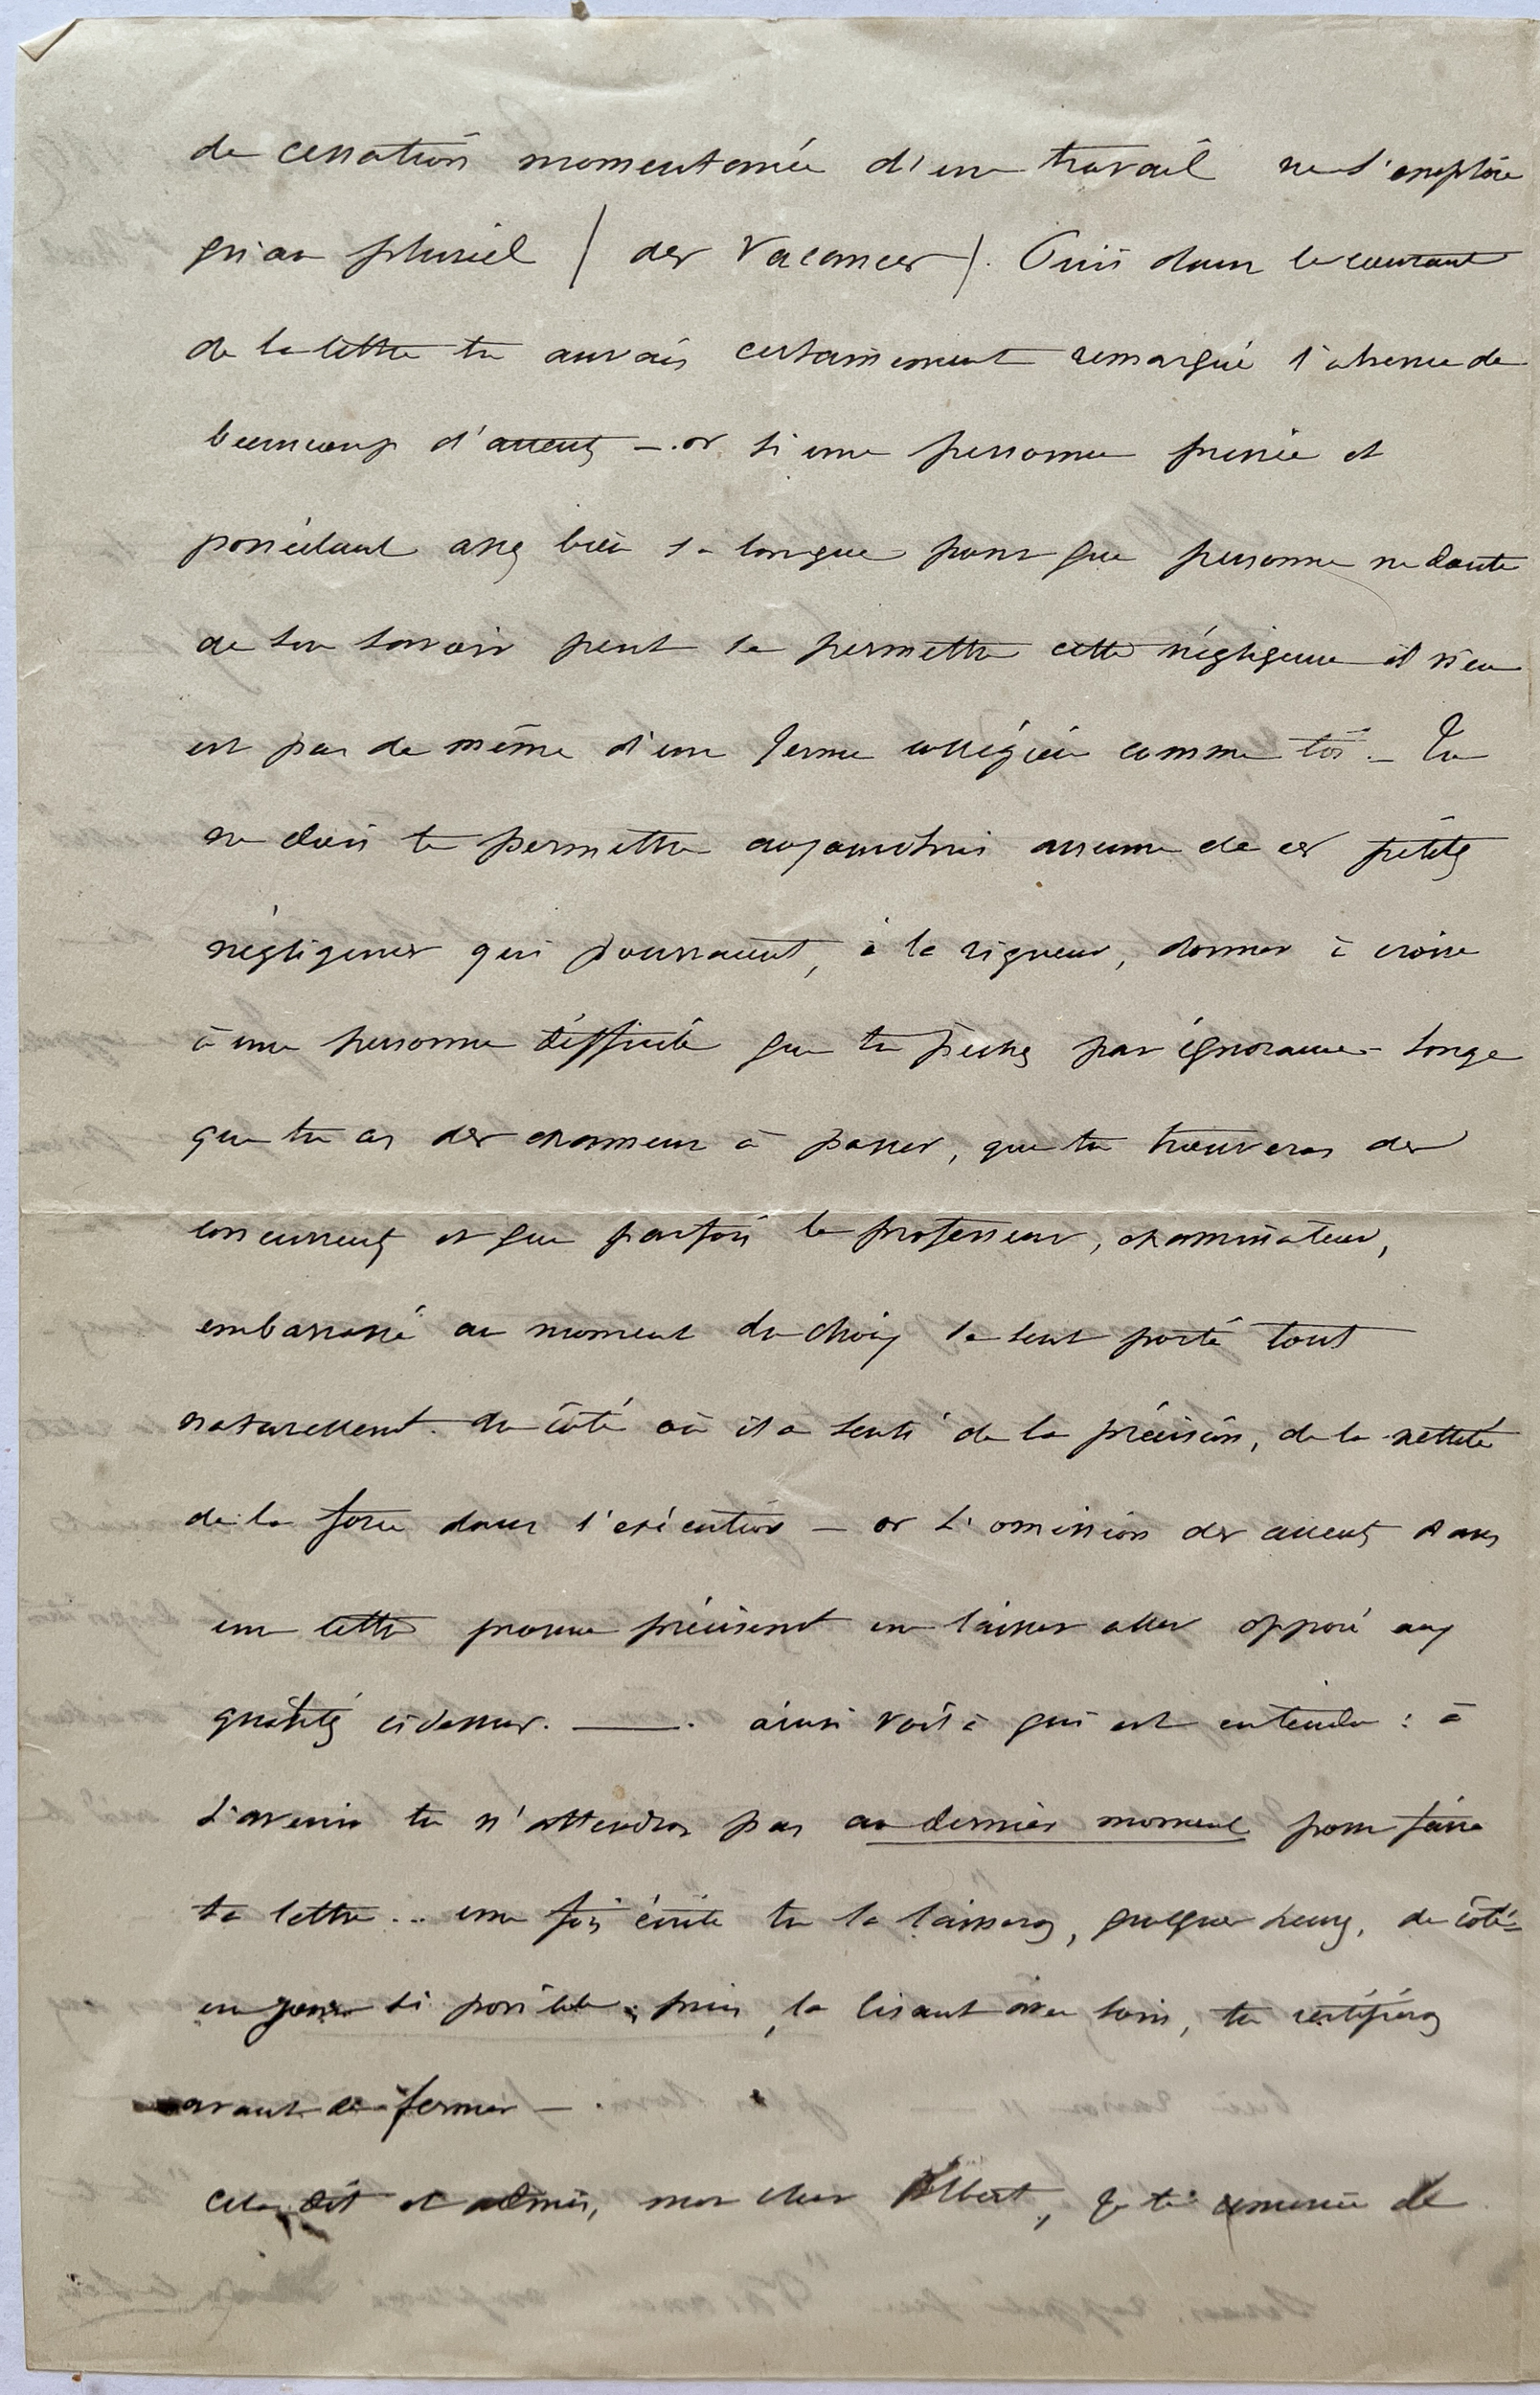 de cessation momentanée d'un travail ne s'emploie
qu'au pluriel ( des Vacances ). Puis dans le courant
de la lettre tu aurais certainement remarqué l'absence de
beaucoup d'accents — or si une personne pressée et
possédant assez bien sa langue pour que personne ne doute
de son savoir peut se permettre cette négligence il n'en
est pas de même d'un jeune collégien comme toi. — Tu
ne dois te permettre aujourd'hui aucune de ces petites
négligences qui pourraient, à la rigueur, donner à croire
à une personne difficile que tu pèches par ignorance — Songe
que tu as des examens à passer, que tu trouveras des
concurrents et que parfois le professeur, examinateur,
embarrassé au moment du choix se sent porté tout
naturellement du côté où il a senti de la précision, de la netteté
de la force dans l'exécution — or l'omission des accents dans
une lettre prouve précisément un laisser aller opposé aux
qualités ci dessus. —— . ainsi voilà qui est entendu : à
l'avenir tu n'attendras pas au dernier moment pour faire
ta lettre... une fois écrite tu la laisseras, quelques heures, de côté =
un jour si possible ; puis, la lisant avec soin, tu rectifieras
avant de fermer — .
Cela dit et admis, mon cher Albert, je te remercie de